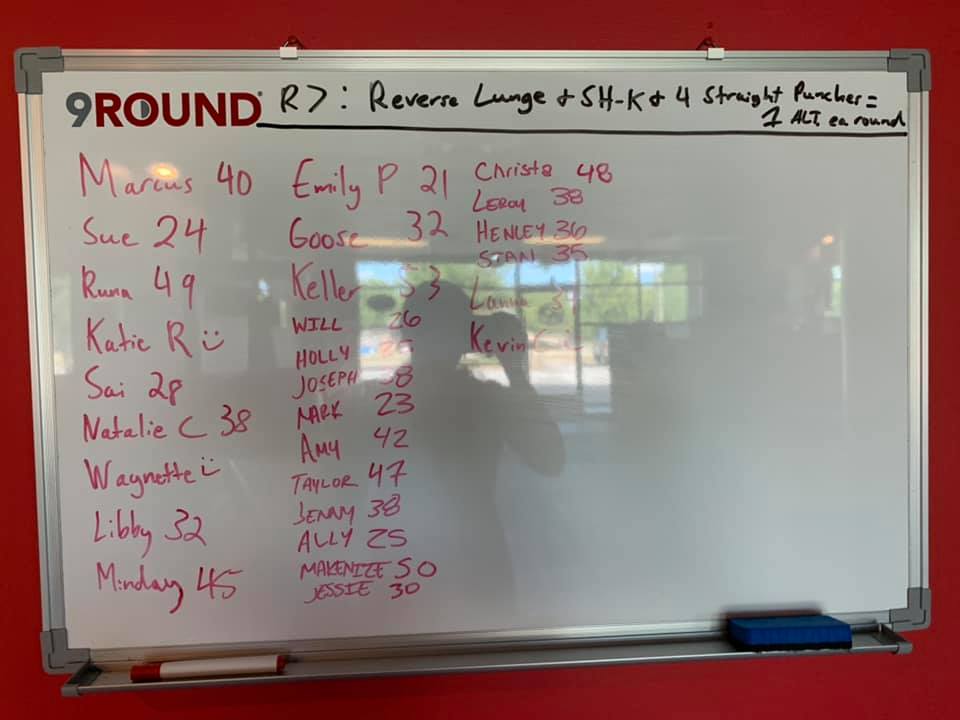 9ROUND R7: Reverse Lunge + SH-K + 4 Straight Punches =
1 ALT. ea round
Marcus 40
Sue 24
Runa 49
Katie R :)
Sai 28
Natalie C 38
Waynette :)
Libby 32
Minday 45
Emily P 21
Goose 32
Keller 53
WILL 26
HOLLY 25
JOSEPH 38
MARK 23
AMY 42
TAYLOR 47
JENNY 38
ALLY 25
MAKENIZE 50
JESSIE 30
Christa 48
LEROY 38
HENLEY 36
STAN 35
Kevin C :)